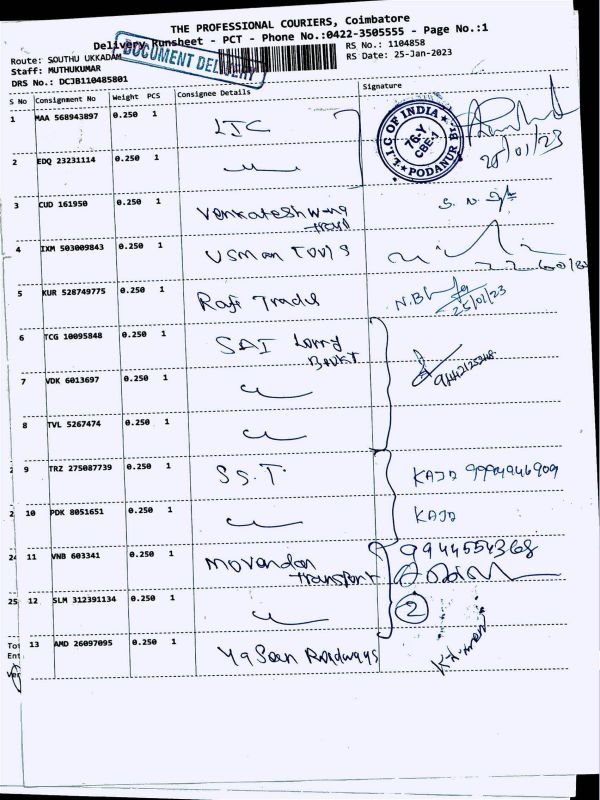 THE PROFESSIONAL COURIERS, Coimbatore
Delivery Runsheet - PCT - Phone No.:0422-3505555 - Page No.:1
Route: SOUTHU UKKADAM
RS No.: 1104858
Staff: MUTHUKUMAR
RS Date: 25-Jan-2023
DRS No.: DCJB110485801
DOCUMENT DELIVERY
S No Consignment No Weight PCS Consignee Details Signature
1 MAA 568943897 0.250 1 LIC
L.I.C OF INDIA
76-Y
CBE-1
PODANUR BR.
2 EDQ 23231114 0.250 1
3 CUD 161950 0.250 1 Venkateshwara
4 IXM 503009843 0.250 1 Usman
5 KUR 528749775 0.250 1 Rafi Trades
25/01/23
6 TCG 10095848 0.250 1 SAI Lorry
7 VDK 6013697 0.250 1
8 TVL 5267474 0.250 1
2 9 TRZ 275087739 0.250 1 SS.T. KAJA 9994946909
2 10 PDK 8051651 0.250 1 KAJA
24 11 VNB 603341 0.250 1 Transport 9944554368
25 12 SLM 312391134 0.250 1 2
Tot 13 AMD 26097095 0.250 1 Roadways
Ent
Ver